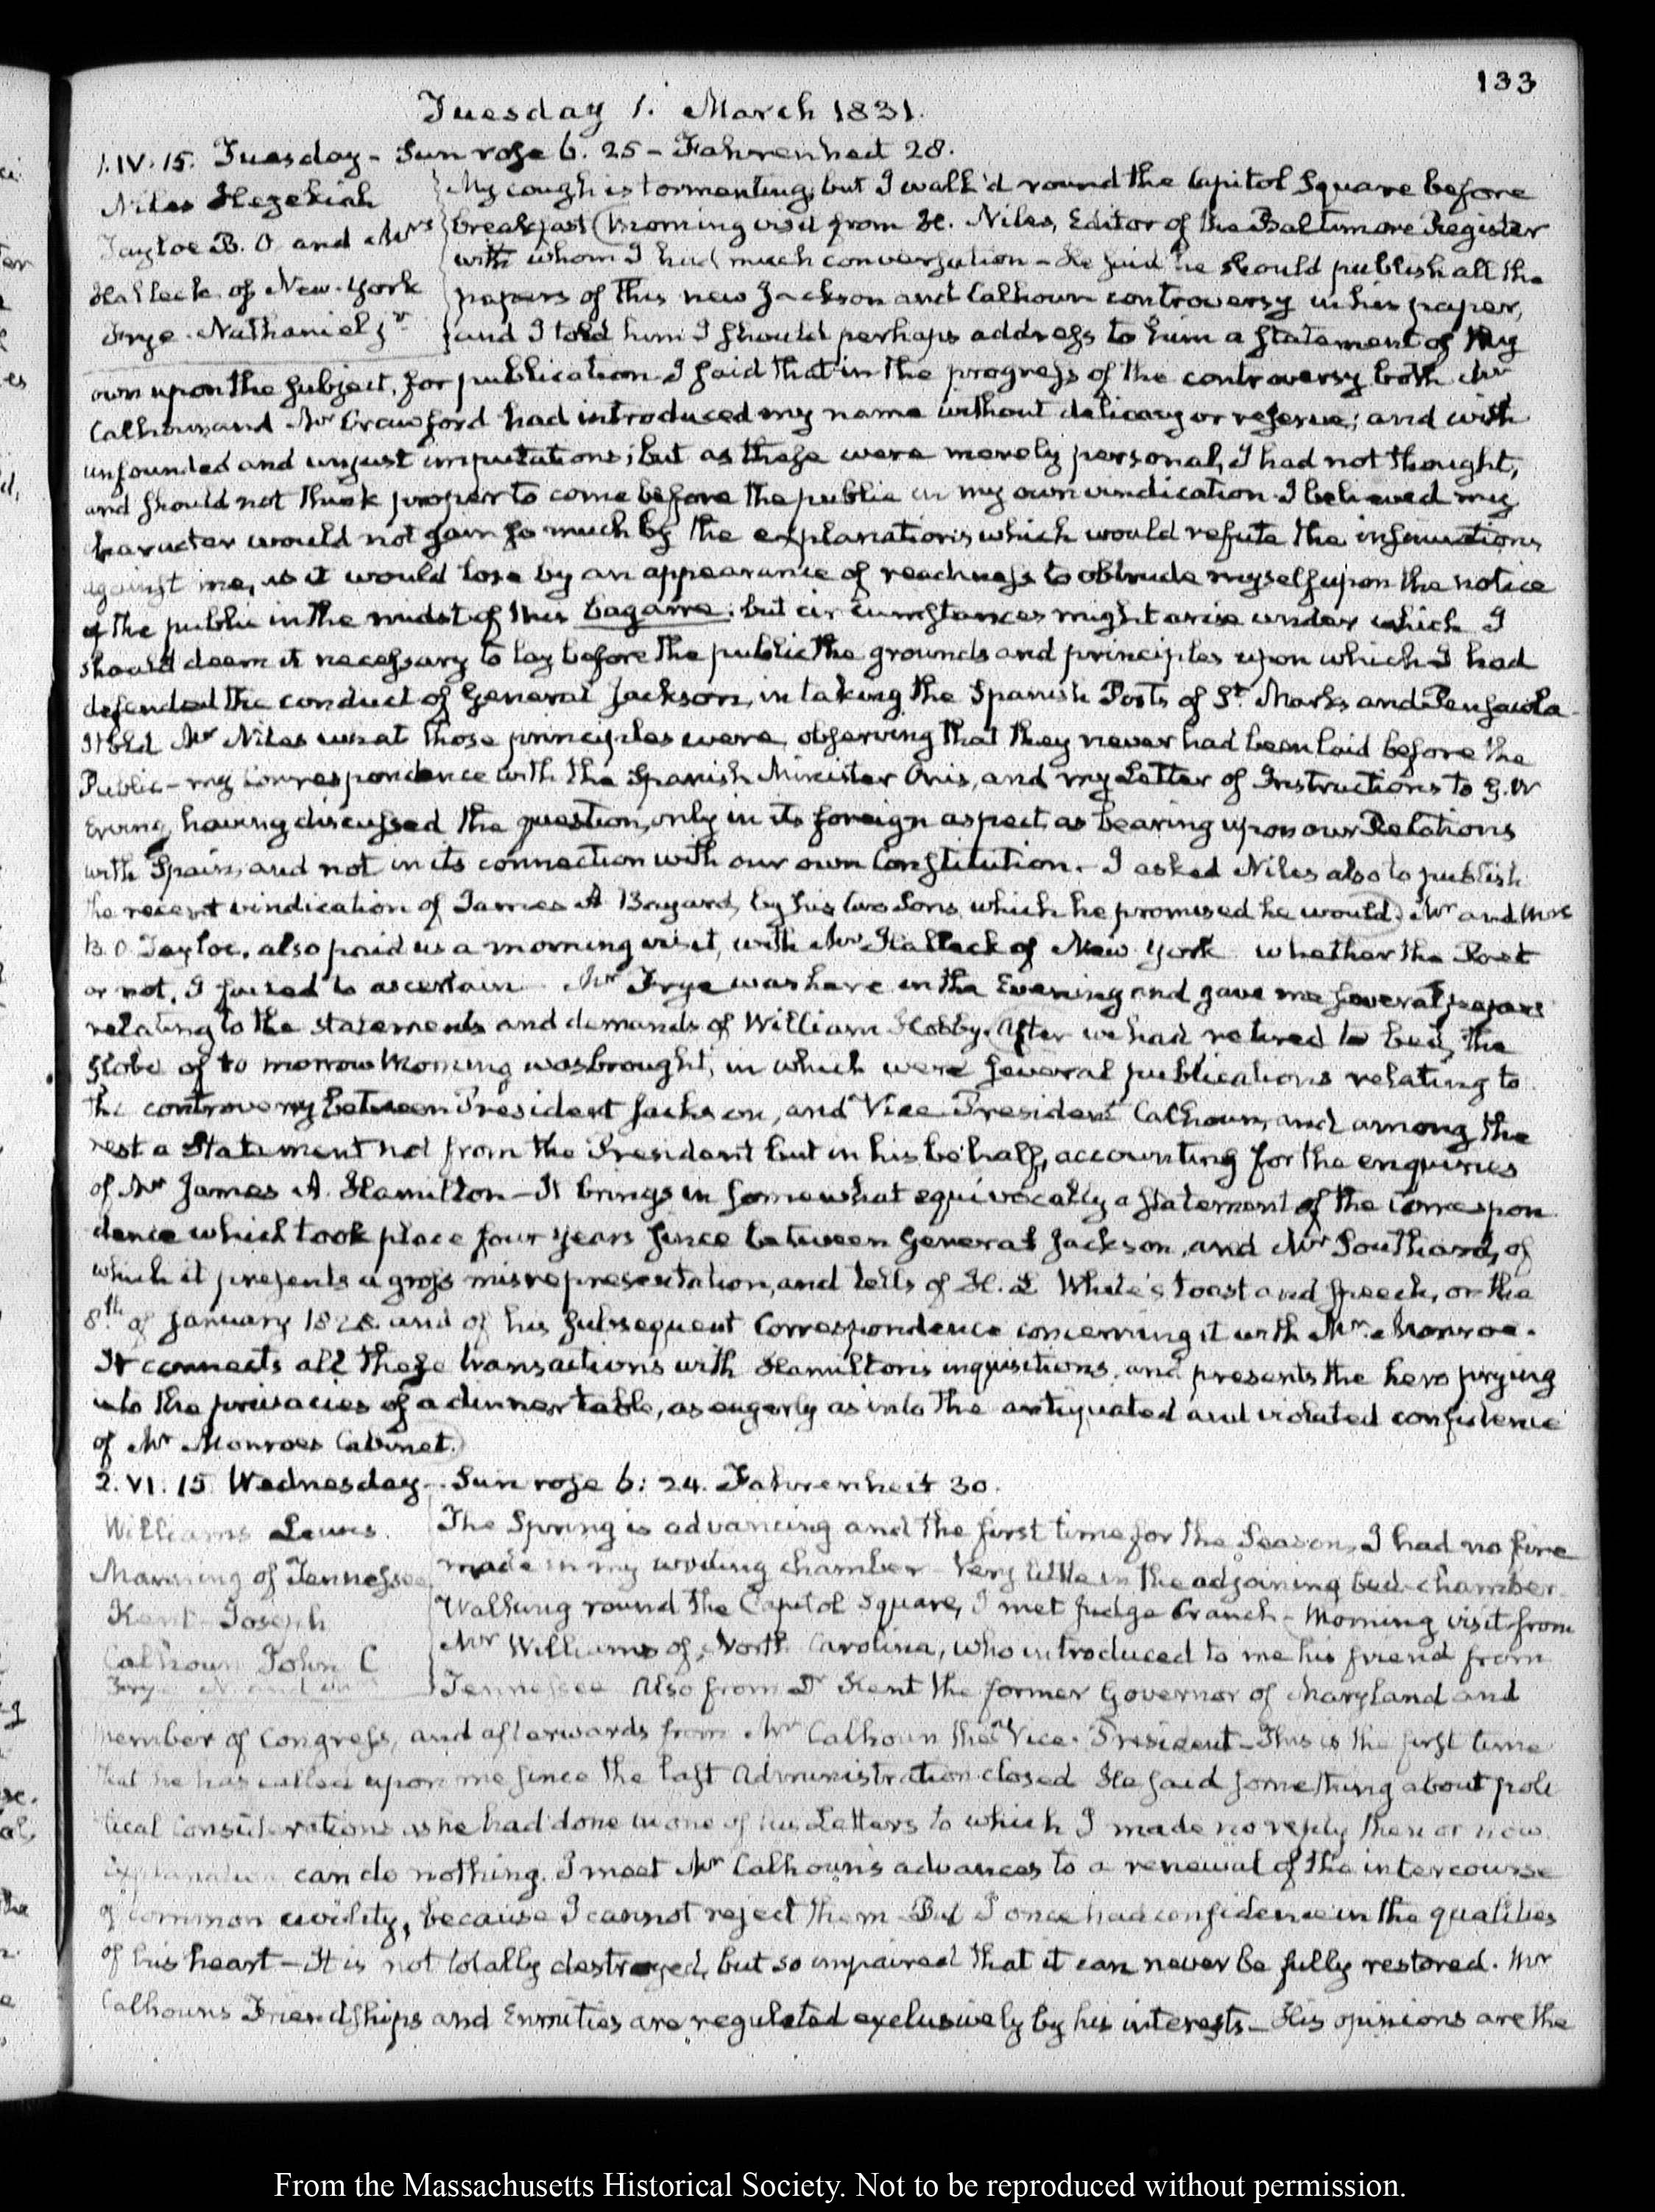 133
Tuesday 1. March 1831.
1. IV. 15. Tuesday - Sun rose 6. 25 - Fahrenheit 28.
Niles Hezekiah
Tayloe B. O. and Mrs
Halleck of New-York
Frye. Nathaniel jr
My cough is tormenting, but I walk'd round the Capitol Square before
breakfast (Morning visit from H. Niles, Editor of the Baltimore Register
with whom I had much conversation - He said he should publish all the
papers of this new Jackson and Calhoun controversy in his paper,
and I told him I should perhaps address to him a statement of my
own upon the subject, for publication. I said that in the progress of the controversy both Mr
Calhoun and Mr Crawford had introduced my name without delicacy or reserve; and with
unfounded and unjust imputations; but as these were merely personal, I had not thought,
and should not think proper to come before the public in my own vindication. I believed my
character would not gain so much by the explanations which would refute the insinuations
against me, as it would lose by an appearance of readiness to obtrude myself upon the notice
of the public in the midst of this bagarre. but circumstances might arise under which I
should deem it necessary to lay before the public the grounds and principles upon which I had
defended the conduct of General Jackson, in taking the Spanish Posts of St. Marks and Pensacola.
I told Mr Niles what those principles were, observing that they never had been laid before the
Public - my correspondence with the Spanish Minister Onis, and my Letter of Instructions to G. W
Erving, having discussed the question, only in its foreign aspect, as bearing upon our Relations
with Spain, and not in its connection with our own Constitution. I asked Niles also to publish
the recent vindication of James A Bayard, by his two Sons, which he promised he would.) Mr and Mrs
B. O Tayloe, also paid us a morning visit, with Mr Halleck of New York whether the Poet
or not, I failed to ascertain Mr Frye was here in the Evening and gave me several papers
relating to the statements and demands of William Hobby. (After we had retired to bed, the
Globe of to morrow Morning was brought, in which were several publications relating to
the controversy between President Jackson, and Vice President Calhoun, and among the
rest a Statement not from the President but in his behalf, accounting for the enquiries
of Mr James A. Hamilton - It brings in somewhat equivocally a statement of the Correspon
dence which took place four years since between General Jackson, and Mr Southard, of
which it presents a gross misrepresentation, and tells of H. L White's toast and speech, on the
8th of January 1828. and of his subsequent Correspondence concerning it with Mr. Monroe.
It connects all these transactions with Hamilton's inquisitions, and presents the hero prying
into the privacies of a dinner table, as eagerly as into the antiquated and violated confidence
of Mr Monroes Cabinet.)
2. VI. 15 Wednesday. Sun rose 6: 24. Fahrenheit 30.
Williams Lewis.
Manning of Tennessee
Kent Joseph
Calhoun John C
Frye N.
The Spring is advancing and the first time for the Season, I had no fire
made in my writing chamber - Very little in the adjoining bed-chamber.
Walking round the Capitol Square, I met Judge Cranch - Morning visit from
Mr Williams of North Carolina, who introduced to me his friend from
Tennessee Also from Dr Kent the former Governor of Maryland and
member of Congress, and afterwards from Mr Calhoun the Vice-President - This is the first time
that he has called upon me since the last Administration closed He said something about poli
tical Considerations as he had done in one of his Letters to which I made no reply then or now.
Explanation can do nothing. I meet Mr Calhoun's advances to a renewal of the intercourse
of common civility, because I cannot reject them But I once had confidence in the qualities
of his heart - It is not totally destroyed, but so impaired that it can never be fully restored. Mr
Calhouns Friendships and Enmities are regulated exclusively by his interests - His opinions are the
From the Massachusetts Historical Society. Not to be reproduced without permission.